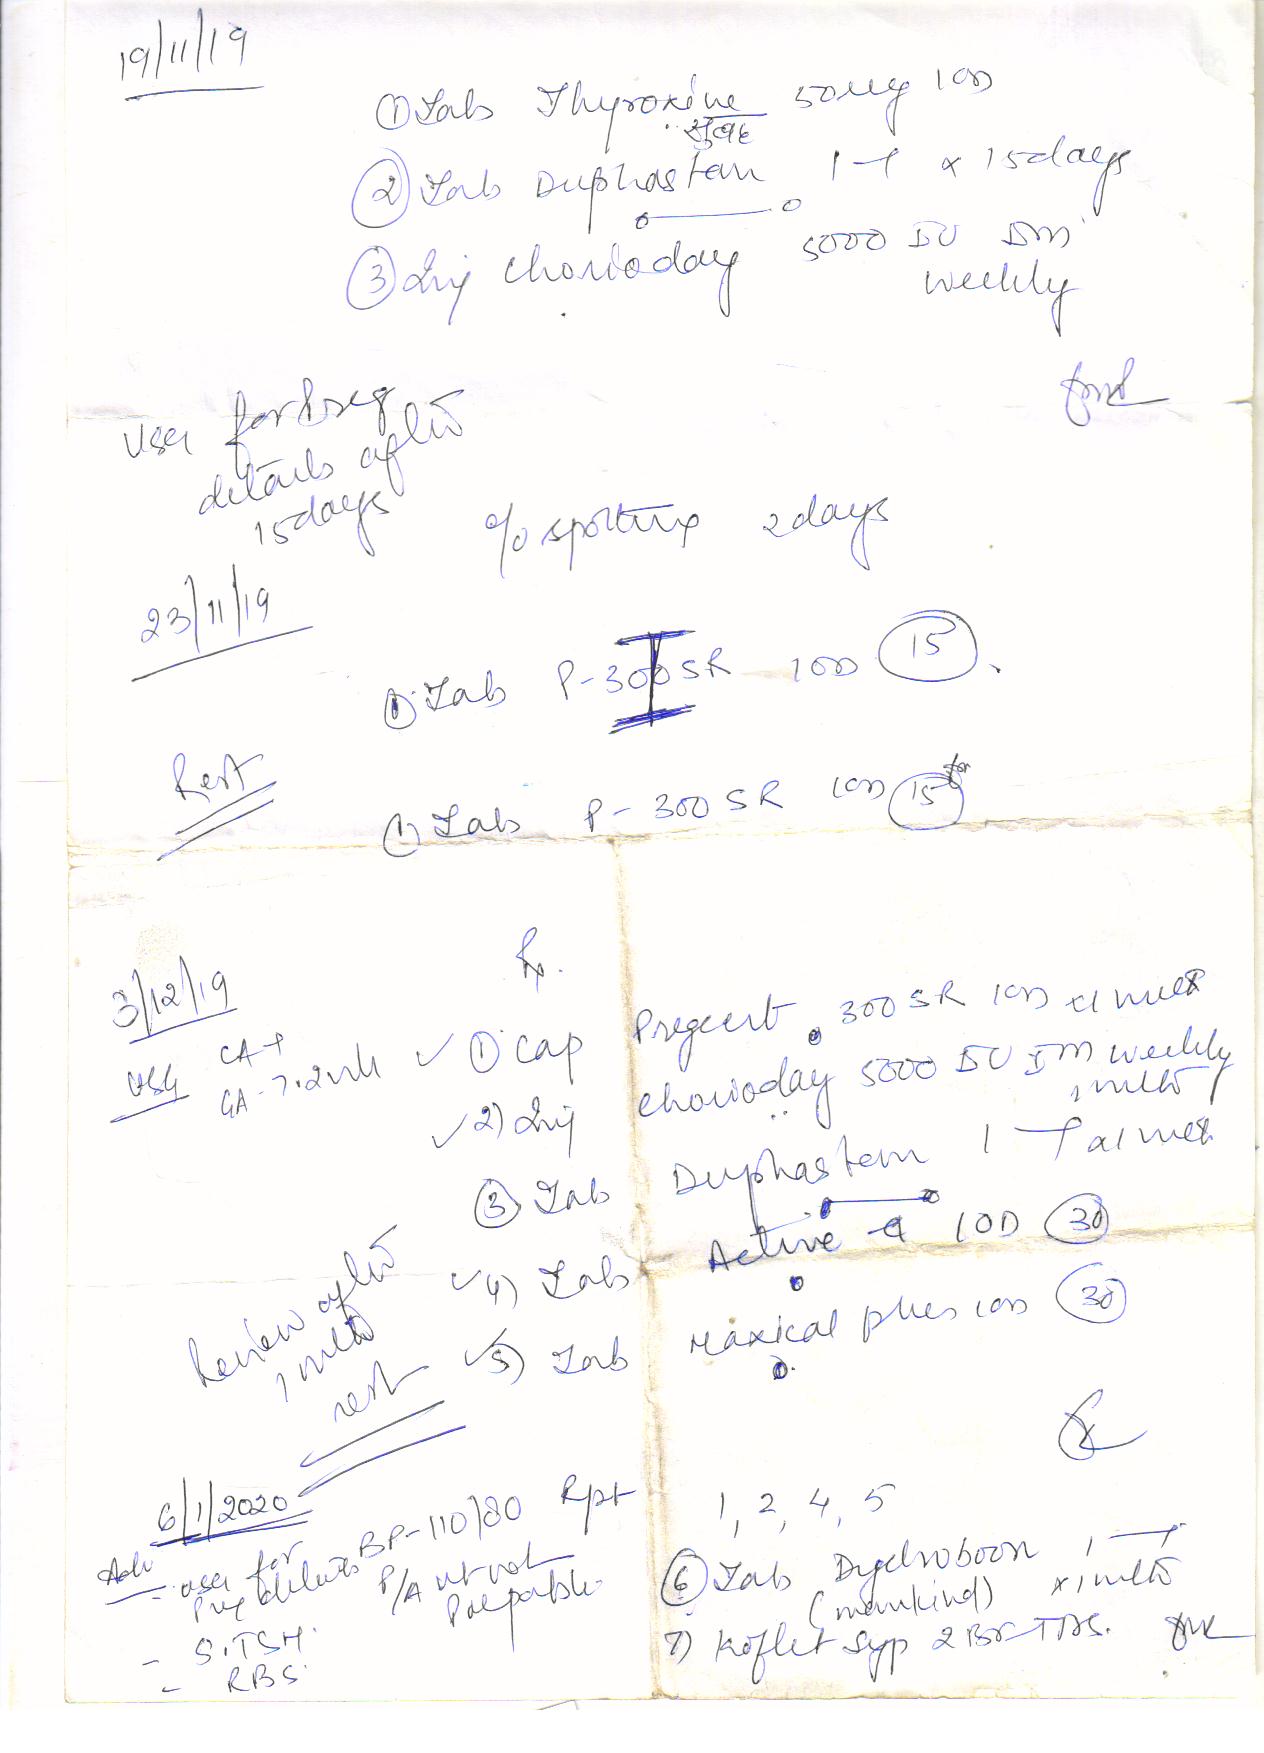 19/11/19
① Tab Thyroxine 50ug 1OD
सुबह
② Tab Duphaston 1-1 x 15days
③ Inj Chorioday 5000 IU IM
weekly
USG for Preg
details after
15days
c/o spotting 2 days
23/11/19
① Tab P-300SR 1OD ⑮
Rest
① Tab P-300SR 1OD ⑮
Rx
3/12/19
USG CA+
GA-7.2wk
✓ ① Cap Pregcert 300SR 1OD x1
✓ 2) Inj Chorioday 5000 IU IM weekly
③ Tab Duphaston 1-1 x1
✓ 4) Tab Active 1OD ㉚
✓ 5) Tab Maxical plus 1OD ㉚
Review after
1 mth
rest
6/1/2020
BP-110/80 Rpt 1, 2, 4, 5
Adv
- USG for
Preg details
P/A ut not
Palpable
- S.TSH
- RBS
⑥ Tab Dydroboon 1-1
(mankind) x1mth
7) Koflet Syp 2 TDS.